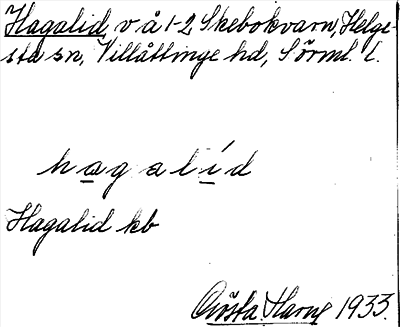 Hagalid, v å 1-2 Skebokvarn, Helge-
sta sn, Villåttinge hd, Sörml. l.
h a g a l í d
Hagalid kb
Gösta Harne 1933.